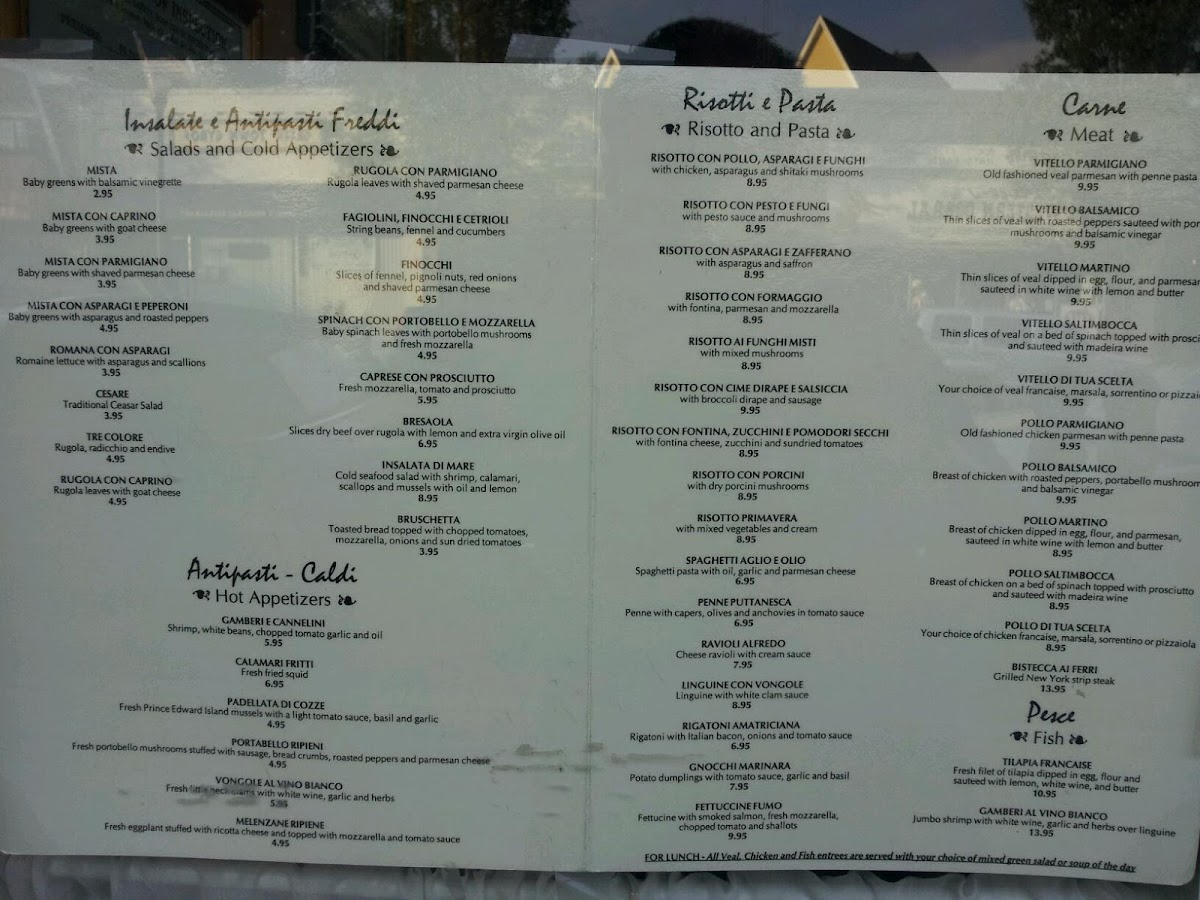 Insalate e Antipasti Freddi
Salads and Cold Appetizers
MISTA
Baby greens with balsamic vinegrette
2.95
MISTA CON CAPRINO
Baby greens with goat cheese
3.95
MISTA CON PARMIGIANO
Baby greens with shaved parmesan cheese
3.95
MISTA CON ASPARAGI E PEPERONI
Baby greens with asparagus and roasted peppers
4.95
ROMANA CON ASPARAGI
Romaine lettuce with asparagus and scallions
3.95
CESARE
Traditional Ceasar Salad
3.95
TRE COLORE
Rugola, radicchio and endive
4.95
RUGOLA CON CAPRINO
Rugola leaves with goat cheese
4.95
RUGOLA CON PARMIGIANO
Rugola leaves with shaved parmesan cheese
4.95
FAGIOLINI, FINOCCHI E CETRIOLI
String beans, fennel and cucumbers
4.95
FINOCCHI
Slices of fennel, pignoli nuts, red onions
and shaved parmesan cheese
4.95
SPINACH CON PORTOBELLO E MOZZARELLA
Baby spinach leaves with portobello mushrooms
and fresh mozzarella
4.95
CAPRESE CON PROSCIUTTO
Fresh mozzarella, tomato and prosciutto
5.95
BRESAOLA
Slices dry beef over rugola with lemon and extra virgin olive oil
6.95
INSALATA DI MARE
Cold seafood salad with shrimp, calamari,
scallops and mussels with oil and lemon
8.95
BRUSCHETTA
Toasted bread topped with chopped tomatoes,
mozzarella, onions and sun dried tomatoes
3.95
Antipasti - Caldi
Hot Appetizers
GAMBERI E CANNELINI
Shrimp, white beans, chopped tomato garlic and oil
5.95
CALAMARI FRITTI
Fresh fried squid
6.95
PADELLATA DI COZZE
Fresh Prince Edward Island mussels with a light tomato sauce, basil and garlic
4.95
PORTABELLO RIPIENI
Fresh portobello mushrooms stuffed with sausage, bread crumbs, roasted peppers and parmesan cheese
4.95
VONGOLE AL VINO BIANCO
Fresh little neck clams with white wine, garlic and herbs
5.95
MELENZANE RIPIENE
Fresh eggplant stuffed with ricotta cheese and topped with mozzarella and tomato sauce
4.95
Risotti e Pasta
Risotto and Pasta
RISOTTO CON POLLO, ASPARAGI E FUNGHI
with chicken, asparagus and shitaki mushrooms
8.95
RISOTTO CON PESTO E FUNGI
with pesto sauce and mushrooms
8.95
RISOTTO CON ASPARAGI E ZAFFERANO
with asparagus and saffron
8.95
RISOTTO CON FORMAGGIO
with fontina, parmesan and mozzarella
8.95
RISOTTO AI FUNGHI MISTI
with mixed mushrooms
8.95
RISOTTO CON CIME DIRAPE E SALSICCIA
with broccoli dirape and sausage
9.95
RISOTTO CON FONTINA, ZUCCHINI E POMODORI SECCHI
with fontina cheese, zucchini and sundried tomatoes
8.95
RISOTTO CON PORCINI
with dry porcini mushrooms
8.95
RISOTTO PRIMAVERA
with mixed vegetables and cream
8.95
SPAGHETTI AGLIO E OLIO
Spaghetti pasta with oil, garlic and parmesan cheese
6.95
PENNE PUTTANESCA
Penne with capers, olives and anchovies in tomato sauce
6.95
RAVIOLI ALFREDO
Cheese ravioli with cream sauce
7.95
LINGUINE CON VONGOLE
Linguine with white clam sauce
8.95
RIGATONI AMATRICIANA
Rigatoni with Italian bacon, onions and tomato sauce
6.95
GNOCCHI MARINARA
Potato dumplings with tomato sauce, garlic and basil
7.95
FETTUCCINE FUMO
Fettucine with smoked salmon, fresh mozzarella,
chopped tomato and shallots
9.95
Carne
Meat
VITELLO PARMIGIANO
Old fashioned veal parmesan with penne pasta
9.95
VITELLO BALSAMICO
Thin slices of veal with roasted peppers sauteed with por
mushrooms and balsamic vinegar
9.95
VITELLO MARTINO
Thin slices of veal dipped in egg, flour, and parmesan
sauteed in white wine with lemon and butter
9.95
VITELLO SALTIMBOCCA
Thin slices of veal on a bed of spinach topped with prosci
and sauteed with madeira wine
9.95
VITELLO DI TUA SCELTA
Your choice of veal francaise, marsala, sorrentino or pizzaio
9.95
POLLO PARMIGIANO
Old fashioned chicken parmesan with penne pasta
9.95
POLLO BALSAMICO
Breast of chicken with roasted peppers, portabello mushroom
and balsamic vinegar
9.95
POLLO MARTINO
Breast of chicken dipped in egg, flour, and parmesan,
sauteed in white wine with lemon and butter
8.95
POLLO SALTIMBOCCA
Breast of chicken on a bed of spinach topped with prosciutto
and sauteed with madeira wine
8.95
POLLO DI TUA SCELTA
Your choice of chicken francaise, marsala, sorrentino or pizzaiola
8.95
BISTECCA AI FERRI
Grilled New York strip steak
13.95
Pesce
Fish
TILAPIA FRANCAISE
Fresh filet of tilapia dipped in egg, flour and
sauteed with lemon, white wine, and butter
10.95
GAMBERI AL VINO BIANCO
Jumbo shrimp with white wine, garlic and herbs over linguine
13.95
FOR LUNCH - All Veal, Chicken and Fish entrees are served with your choice of mixed green salad or soup of the day